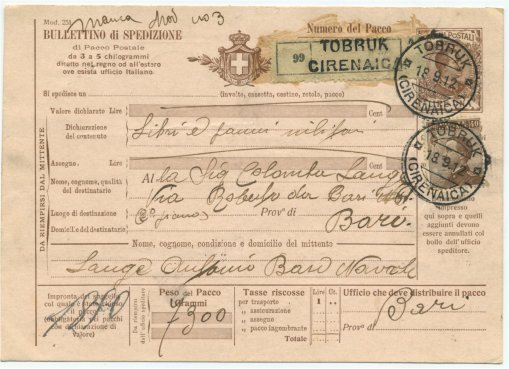 Mod. 251
manca Mod no 3
BULLETTINO di SPEDIZIONE
di Pacco Postale
da 3 a 5 chilogrammi
diretto nel regno od all'estero
ove esista ufficio italiano.
Numero del Pacco
POSTALI
99 TOBRUK
CIRENAICA
TOBRUK
18.9.17
(CIRENAICA)
TOBRUK
18.9.17
(CIRENAICA)
Si spedisce un (involto, cassetta, cestino, rotolo, pacco)
Valore dichiarato Lire Cent
Dichiarazione del contenuto Libri e panni militari
Assegno. Lire Cent
Nome, cognome, qualità del destinatario Alla Sig Colomba Lange
Via Roberto da Bari
Luogo di destinazione
Domic.l e del destinatario Prov.a di Bari.
Nome, cognome, condizione e domicilio del mittente
Lange Antonio Bari
DA RIEMPIRSI DAL MITTENTE
qui sopra e quelli
aggiunti devono
essere annullati col
bollo dell'ufficio
speditore.
Impronta del suggello
col quale è
il pacco
(obbligatoria nei pacchi
con dichiarazione di
valore)
Da riempirsi
dall'ufficio speditore
Peso del Pacco
Grammi
7300
Tasse riscosse L. C.
per trasporto
" assicurazione
" assegno
" pacco ingombrante
Totale
Ufficio che deve distribuire il pacco
Bari
Prov.a di